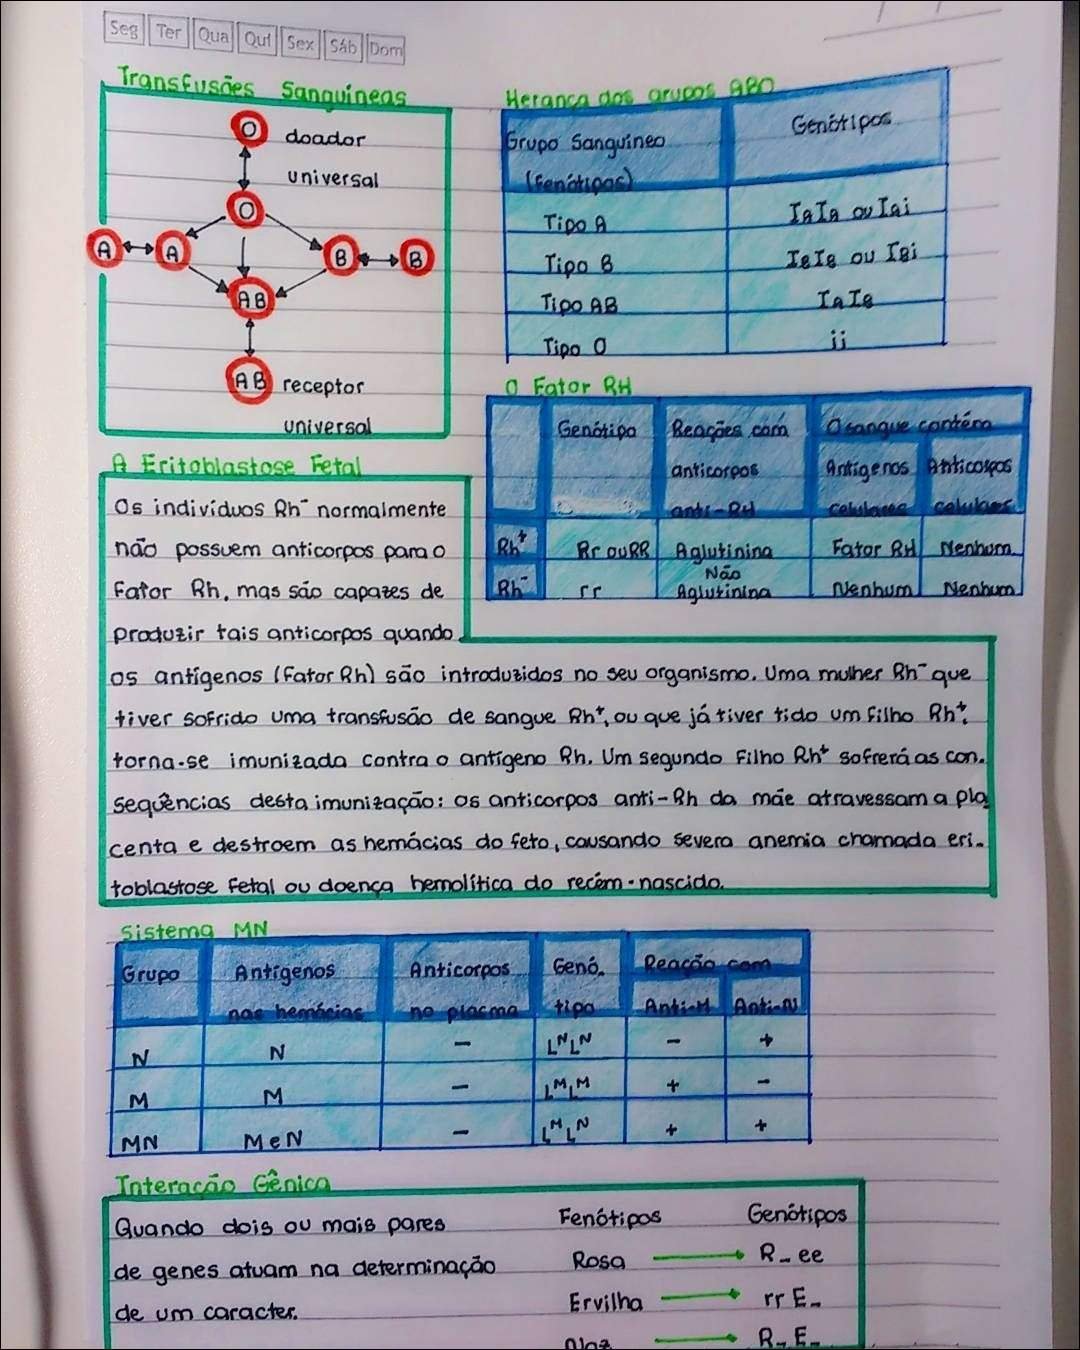 Seg Ter Qua Qui Sex Sáb Dom
Transfusões Sanguíneas
O doador
universal
O
A A B B
AB
AB receptor
universal
Herança dos grupos ABO
Grupo Sanguíneo Genótipos
(Fenótipos)
Tipo A IAIA ou IAi
Tipo B IBIB ou IBi
Tipo AB IAIB
Tipo O ii
O Fator RH
Genótipo Reações com O sangue contém
anticorpos Antígenos Anticorpos
anti-RH celulares celulares
Rh+ Rr ou RR Aglutinina Fator RH Nenhum
Não
Rh- rr Aglutinina Nenhum Nenhum
A Eritoblastose Fetal
Os indivíduos Rh- normalmente
não possuem anticorpos para o
Fator Rh, mas são capazes de
produzir tais anticorpos quando
os antígenos (Fator Rh) são introduzidos no seu organismo. Uma mulher Rh- que
tiver sofrido uma transfusão de sangue Rh+, ou que já tiver tido um filho Rh+,
torna-se imunizada contra o antígeno Rh. Um segundo Filho Rh+ sofrerá as con-
sequências desta imunização: os anticorpos anti-Rh da mãe atravessam a pla
centa e destroem as hemácias do feto, causando severa anemia chamada eri-
toblastose fetal ou doença hemolítica do recém-nascido.
Sistema MN
Grupo Antígenos Anticorpos Genó- Reação com
nas hemácias no plasma tipo Anti-M Anti-N
N N - LNLN - +
M M - LMLM + -
MN M e N - LMLN + +
Interação Gênica
Quando dois ou mais pares Fenótipos Genótipos
de genes atuam na determinação Rosa R_ee
de um caracter. Ervilha rrE_
Noz R_E_